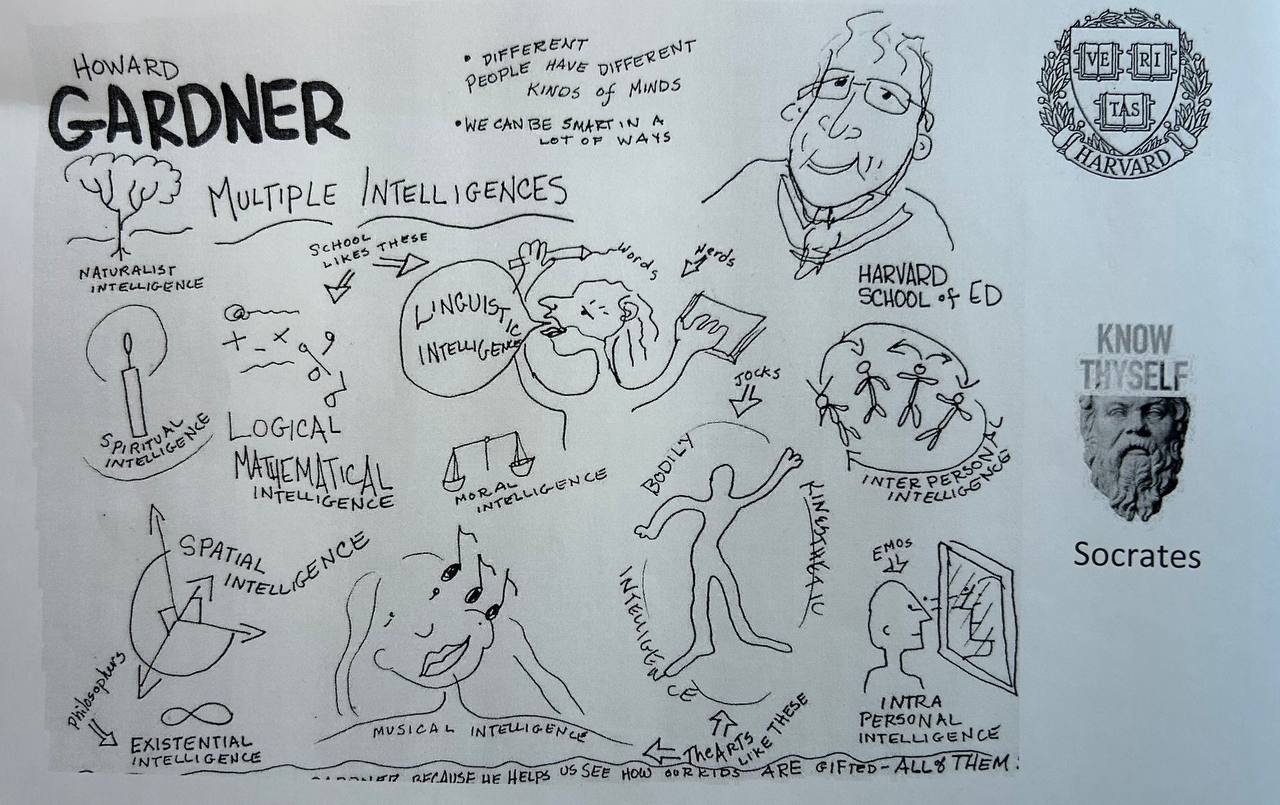 HOWARD
GARDNER
• DIFFERENT
PEOPLE HAVE DIFFERENT
KINDS of MINDS
• WE CAN BE SMART IN A
LOT OF WAYS
VE RI
TAS
HARVARD
MULTIPLE INTELLIGENCES
NATURALIST
INTELLIGENCE
SCHOOL
LIKES THESE
Words
Nerds
HARVARD
SCHOOL of ED
LINGUISTIC
INTELLIGENCE
+ - x
KNOW
THYSELF
Socrates
JOCKS
SPIRITUAL
INTELLIGENCE
LOGICAL
MATHEMATICAL
INTELLIGENCE
MORAL INTELLIGENCE
BODILY
KINESTHEAIC
INTELLIGENCE
INTERPERSONAL
INTELLIGENCE
SPATIAL
INTELLIGENCE
EMOS
INTRA
PERSONAL
INTELLIGENCE
Philosophers
EXISTENTIAL
INTELLIGENCE
MUSICAL INTELLIGENCE
The ARTS
LIKE THESE
GARDNER BECAUSE HE HELPS US SEE HOW OUR KIDS ARE GIFTED - ALL of THEM.